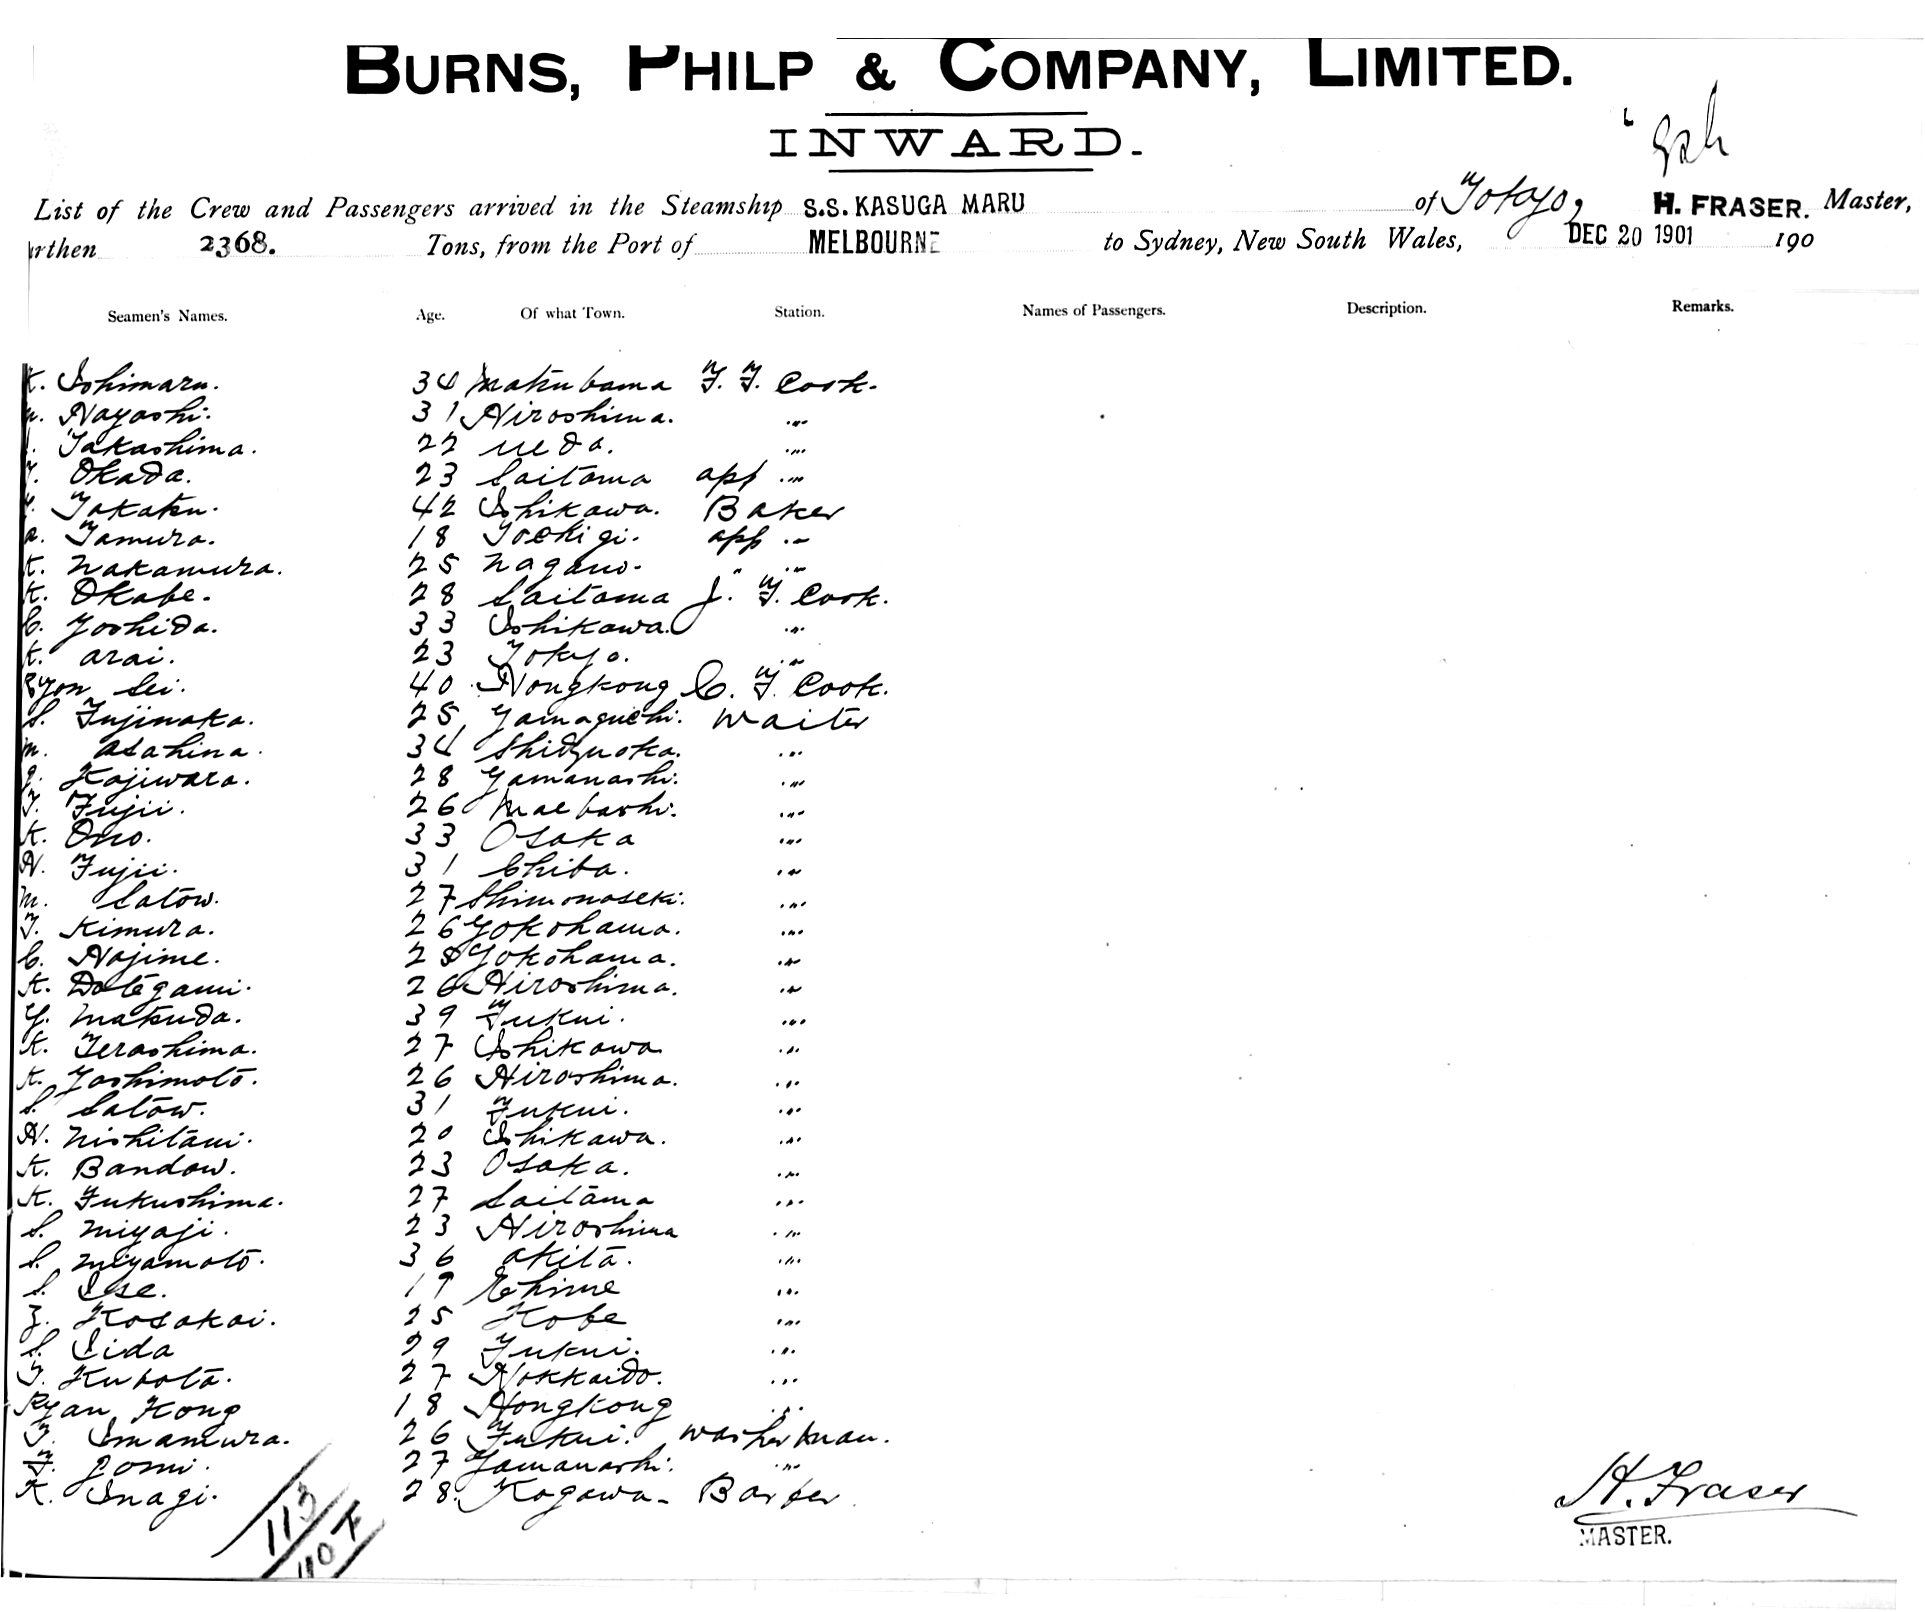 BURNS, PHILP & COMPANY, LIMITED.
INWARD.
List of the Crew and Passengers arrived in the Steamship S.S. KASUGA MARU of Tokyo, H. FRASER. Master,
rthen 2368. Tons, from the Port of MELBOURNE to Sydney, New South Wales, DEC 20 1901 190
Seamen's Names. Age. Of what Town. Station. Names of Passengers. Description. Remarks.
K. Ishimaru. 34 Matsubama F. F. Cook.
Hayashi. 31 Hiroshima. "
Takashima. 22 Ueda. "
Okada. 23 Saitama app "
Takatu. 42 Ishikawa. Baker
a. Tamura. 18 Tochigi. app "
K. Nakamura. 25 Nagano. "
K. Okabe. 28 Saitama J. F. Cook.
C. Yoshida. 33 Ishikawa. "
K. Arai. 23 Tokyo. "
Ryon Sei. 40 Hongkong C. F. Cook.
S. Fujinaka. 25 Yamaguchi. Waiter
M. Asahina. 34 Shidzuoka. "
Kajiwara. 28 Yamanashi. "
T. Fujii. 26 Maebashi. "
K. Ono. 33 Osaka "
H. Fujii. 31 Chiba. "
M. Satow. 27 Shimonoseki. "
T. Kimura. 26 Yokohama. "
C. Hajime. 28 Yokohama. "
K. Dategami. 26 Hiroshima. "
Y. Matsuda. 39 Fukui. "
K. Terashima. 27 Ishikawa "
K. Yoshimoto. 26 Hiroshima. "
S. Satow. 31 Fukui. "
H. Nishitani. 20 Ishikawa. "
K. Bandow. 23 Osaka. "
K. Fukushima. 27 Saitama "
S. Miyaji. 23 Hiroshima "
S. Miyamoto. 36 Akita. "
S. Ise. 19 Ehime "
Z. Kosakai. 25 Kobe "
S. Iida 29 Fukui. "
T. Kubota. 27 Hokkaido. "
Ryan Kong 18 Hongkong "
T. Imamura. 26 Fukui. Washerman.
F. Gomi. 27 Yamanashi. "
K. Inagi. 28. Kagawa. Barber
113
110 F
H. Fraser
MASTER.